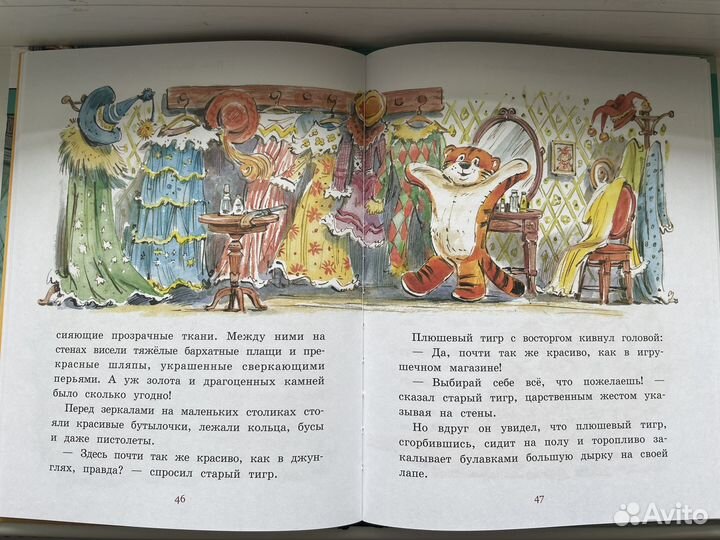 сияющие прозрачные ткани. Между ними на
стенах висели тяжёлые бархатные плащи и пре-
красные шляпы, украшенные сверкающими
перьями. А уж золота и драгоценных камней
было сколько угодно!
Перед зеркалами на маленьких столиках сто-
яли красивые бутылочки, лежали кольца, бусы
и даже пистолеты.
— Здесь почти так же красиво, как в джун-
глях, правда? — спросил старый тигр.
46
Плюшевый тигр с восторгом кивнул головой:
— Да, почти так же красиво, как в игру-
шечном магазине!
— Выбирай себе всё, что пожелаешь! —
сказал старый тигр, царственным жестом ука-
зывая на стены.
Но вдруг он увидел, что плюшевый тигр,
сгорбившись, сидит на полу и торопливо за-
калывает булавками большую дырку на своей
лапе.
47
Avito